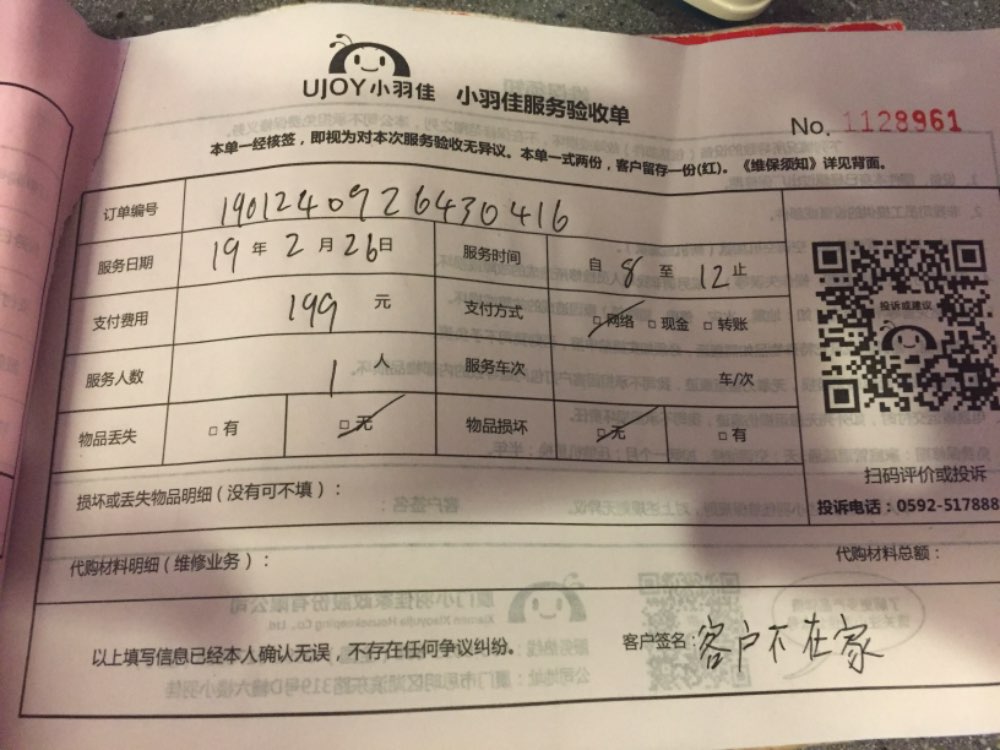 UJOY小羽佳 小羽佳服务验收单
No. 1128961
本单一经核签，即视为对本次服务验收无异议。本单一式两份，客户留存一份(红)。《维保须知》详见背面。
订单编号 1901240926430416
服务日期 19年2月26日 服务时间 自8至12止
支付费用 199元 支付方式 □网络 □现金 □转账
投诉或建议
服务人数 1人 服务车次 车/次
物品丢失 □有 □无 物品损坏 □无 □有
扫码评价或投诉
损坏或丢失物品明细（没有可不填）：
投诉电话：0592-517888
代购材料明细（维修业务）： 代购材料总额：
以上填写信息已经本人确认无误，不存在任何争议纠纷。 客户签名：客户不在家